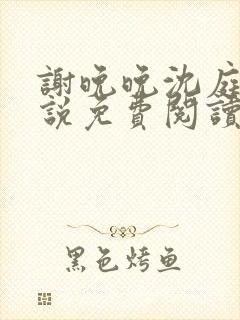 謝晚晚沈庭
說免費閱讀
黑色烤鱼